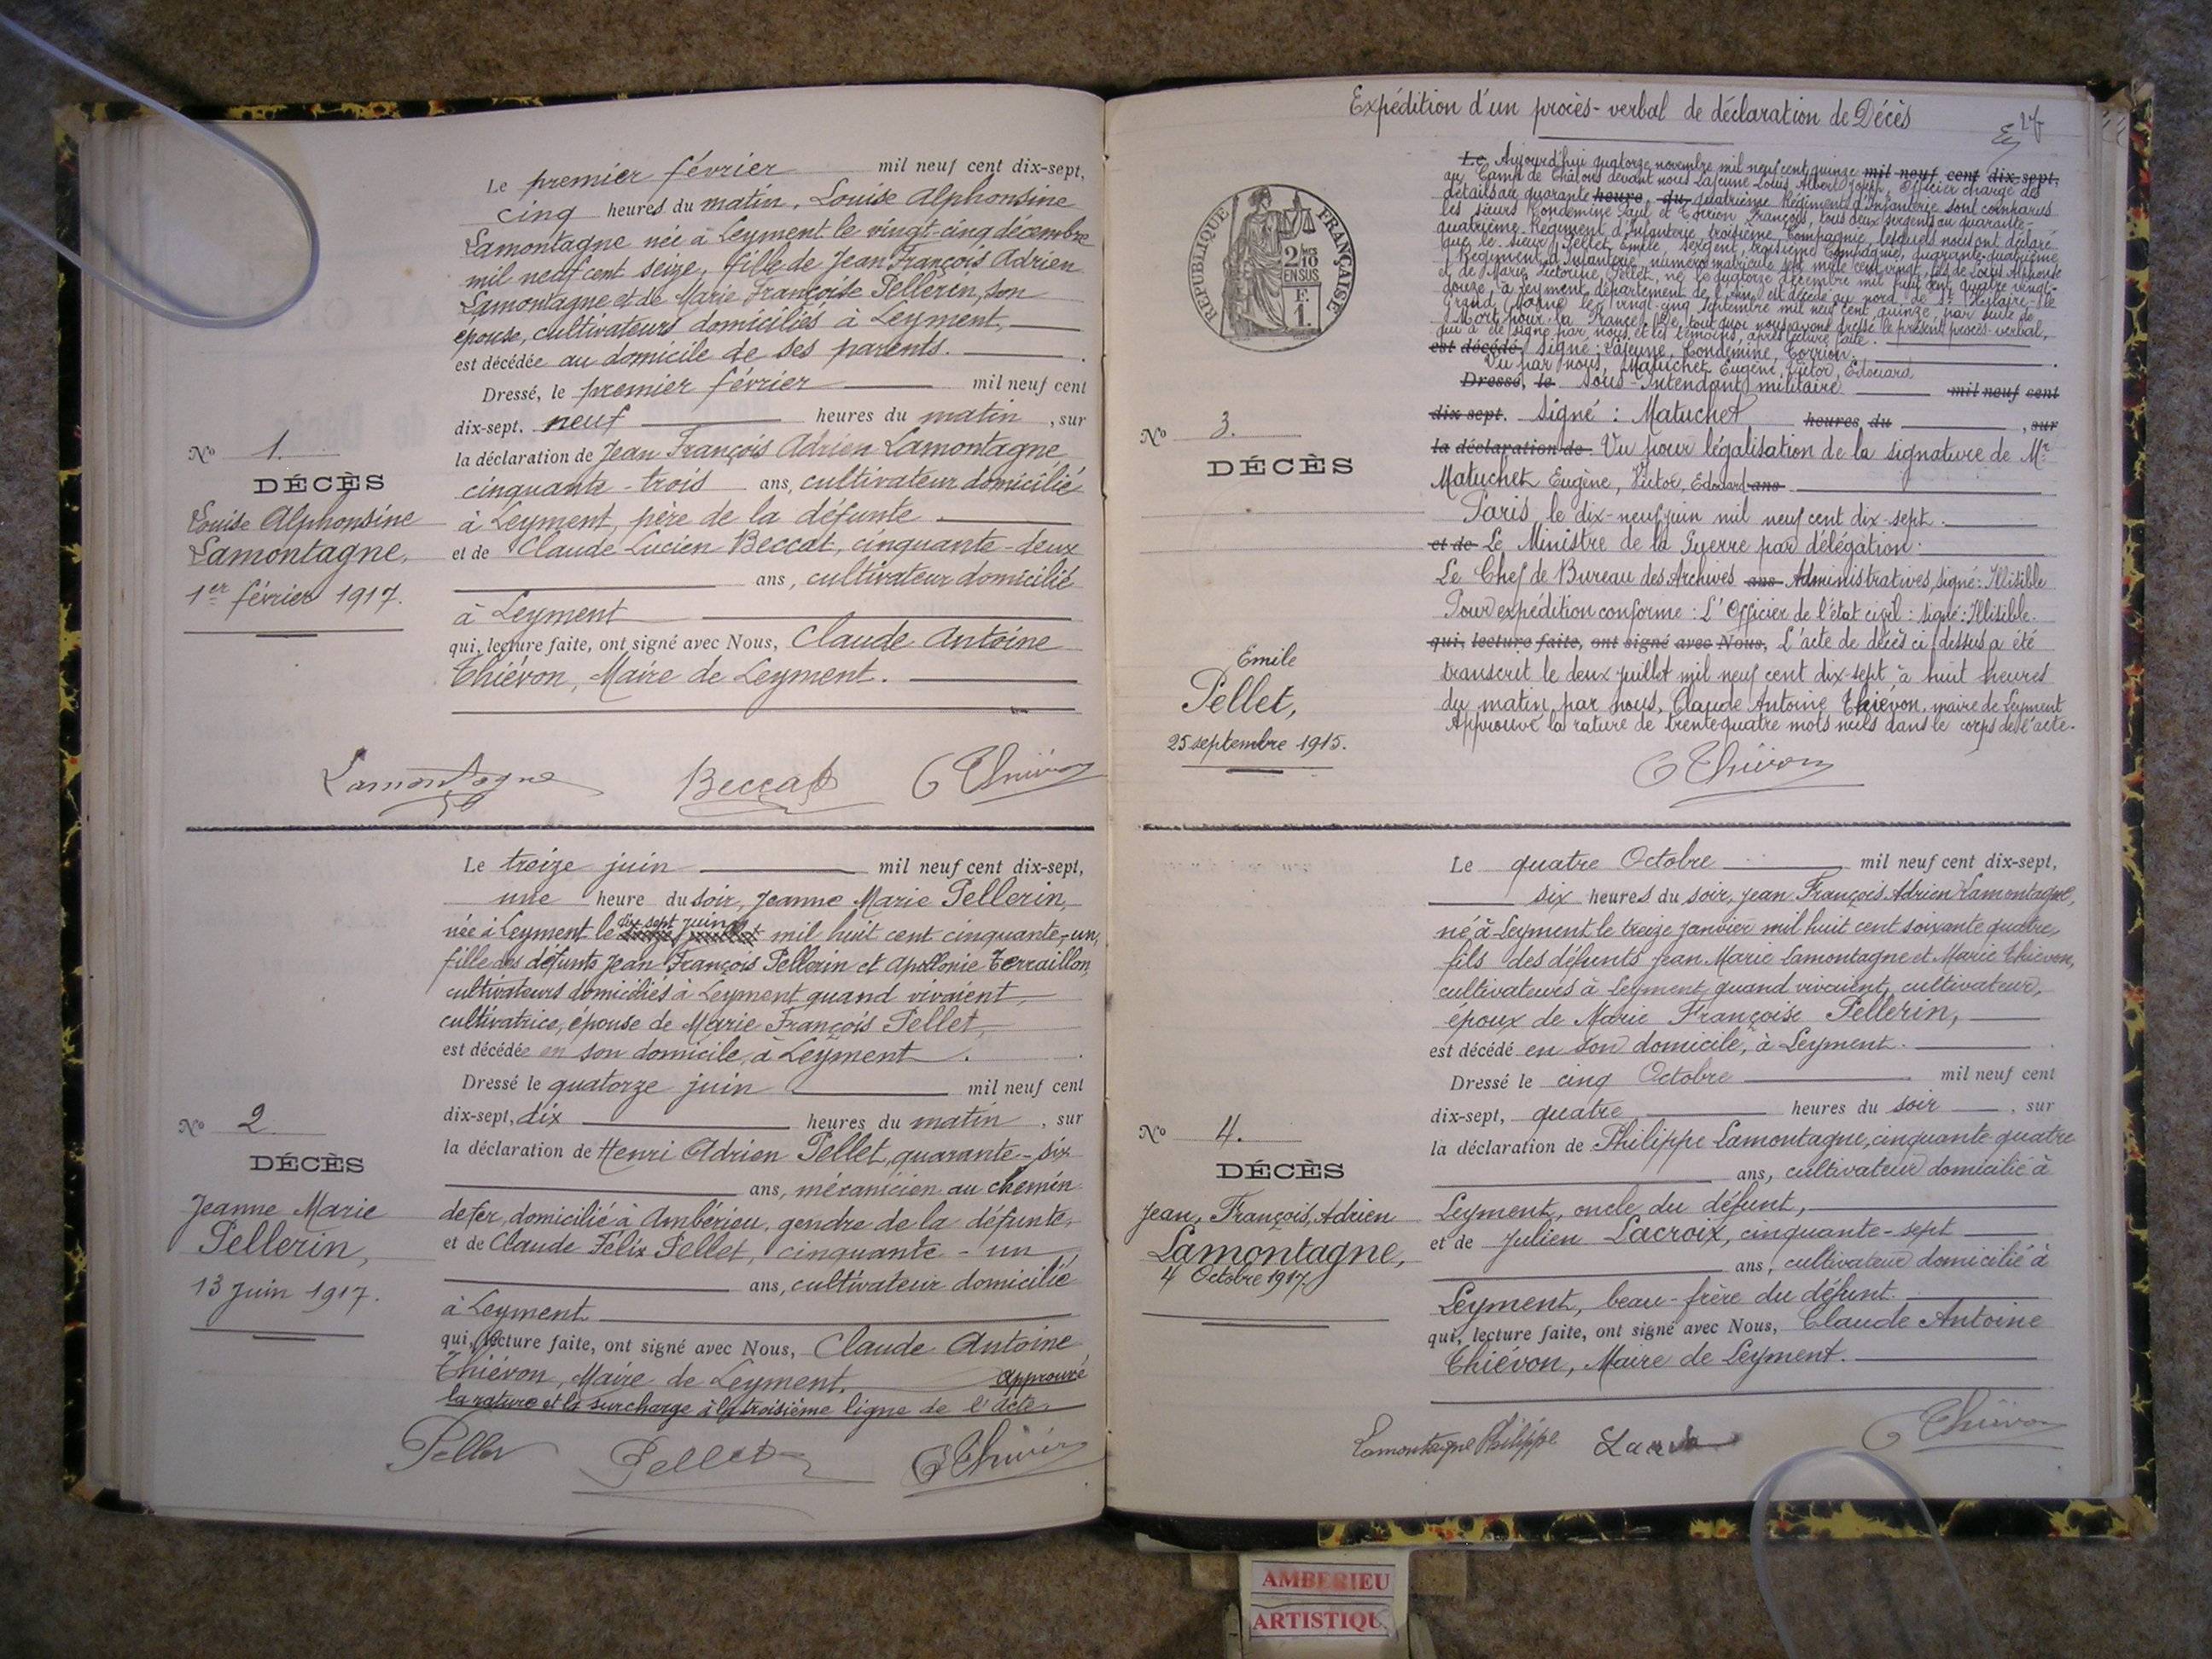 Le premier février mil neuf cent dix-sept,
cinq heures du matin, Louise Alphonsine
Lamontagne née à Leyment le vingt-cinq décembre
mil neuf cent seize, fille de Jean François Adrien
Lamontagne et de Marie Françoise Pellerin, son
épouse, cultivateurs domiciliés à Leyment,
est décédée au domicile de ses parents.
Dressé, le premier février mil neuf cent
dix-sept. neuf heures du matin, sur
la déclaration de Jean François Adrien Lamontagne
cinquante-trois ans, cultivateur domicilié
à Leyment, père de la défunte
et de Claude Lucien Beccat, cinquante-deux
ans, cultivateur domicilié
à Leyment
qui, lecture faite, ont signé avec Nous, Claude Antoine
Thiévon, Maire de Leyment.
No 1.
DÉCÈS
Louise Alphonsine
Lamontagne,
1er février 1917.
Lamontagne Beccat C Thiévon
Le treize juin mil neuf cent dix-sept,
une heure du soir, Jeanne Marie Pellerin,
née à Leyment le dix sept juin mil huit cent cinquante-un,
fille des défunts Jean François Pellerin et Apollonie Terraillon,
cultivateurs domiciliés à Leyment quand vivaient,
cultivatrice, épouse de Marie François Pellet,
est décédée en son domicile, à Leyment.
Dressé le quatorze juin mil neuf cent
dix-sept, dix heures du matin, sur
la déclaration de Henri Adrien Pellet, quarante-six
ans, mécanicien au chemin
de fer, domicilié à Ambérieu, gendre de la défunte,
et de Claude Félix Pellet, cinquante-un
ans, cultivateur domicilié
à Leyment
qui, lecture faite, ont signé avec Nous, Claude Antoine
Thiévon, Maire de Leyment. approuvé
la rature et la surcharge à la troisième ligne de l'acte.
No 2
DÉCÈS
Jeanne Marie
Pellerin,
13 Juin 1917.
Pellet Pellet C Thiévon
Expédition d'un procès-verbal de déclaration de Décès
Le Aujourd'hui quatorze novembre mil neuf cent quinze mil neuf cent dix-sept.
au Camp de Châlons devant nous Lajeune Louis, Albert Joseph, Officier chargé des
détails au quarante heure du quatrième Régiment d'Infanterie sont comparus
les sieurs Condemine Paul et Corrion François, tous deux sergents au quarante-
quatrième Régiment d'Infanterie, troisième Compagnie, lesquels nous ont déclaré
que le sieur Pellet, Emile, sergent, troisième Compagnie, quarante-quatrième
Régiment d'Infanterie, numéro matricule sept mille cent vingt, fils de Louis Alphonse
et de Marie Victorine Pellet, né le quatorze décembre mil huit cent quatre vingt-
douze, à Leyment, département de l'Ain, est décédé au nord de St Hilaire-le
Grand, Marne, le vingt-cinq septembre mil neuf cent quinze, par suite de
Mort pour la France. De tout quoi nous avons dressé le présent procès-verbal,
qui a été signé par nous et les témoins, après lecture faite.
est décédé, Signé: Lajeune, Condemine, Corrion.
Vu par nous, Matuchet, Eugène, Victor, Edouard
Dressé, le Sous-Intendant militaire mil neuf cent
dix-sept. signé: Matuchet heures du , sur
la déclaration de Vu pour légalisation de la signature de Mr
Matuchet Eugène, Victor, Edouard ans
Paris, le dix-neuf juin mil neuf cent dix-sept.
et de Le Ministre de la Guerre par délégation:
Le Chef de Bureau des Archives ans Administratives, signé: Illisible
Pour expédition conforme: L'Officier de l'état civil: signé: Illisible.
qui, lecture faite, ont signé avec Nous, L'acte de décès ci dessus a été
transcrit le deux juillet mil neuf cent dix-sept à huit heures
du matin, par nous, Claude Antoine Thiévon, maire de Leyment
Approuvé la rature de trente-quatre mots nuls dans le corps de l'acte.
REPUBLIQUE FRANÇAISE
2/10
EN SUS
F.
1.
No 3.
DÉCÈS
Emile
Pellet,
25 septembre 1915.
C Thiévon
Le quatre Octobre mil neuf cent dix-sept,
six heures du soir, Jean François Adrien Lamontagne,
né à Leyment le treize janvier mil huit cent soixante quatre,
fils des défunts Jean Marie Lamontagne et Marie Thiévon,
cultivateurs à Leyment, quand vivaient, cultivateur,
époux de Marie Françoise Pellerin,
est décédé en son domicile, à Leyment.
Dressé le cinq Octobre mil neuf cent
dix-sept, quatre heures du soir, sur
la déclaration de Philippe Lamontagne, cinquante quatre
ans, cultivateur domicilié à
Leyment, oncle du défunt,
et de Julien Lacroix, cinquante-sept
ans, cultivateur domicilié à
Leyment, beau-frère du défunt.
qui, lecture faite, ont signé avec Nous, Claude Antoine
Thiévon, Maire de Leyment.
No 4.
DÉCÈS
Jean, François, Adrien
Lamontagne,
4 Octobre 1917.
Lamontagne Philippe C Thiévon
AMBERIEU
ARTISTIQU